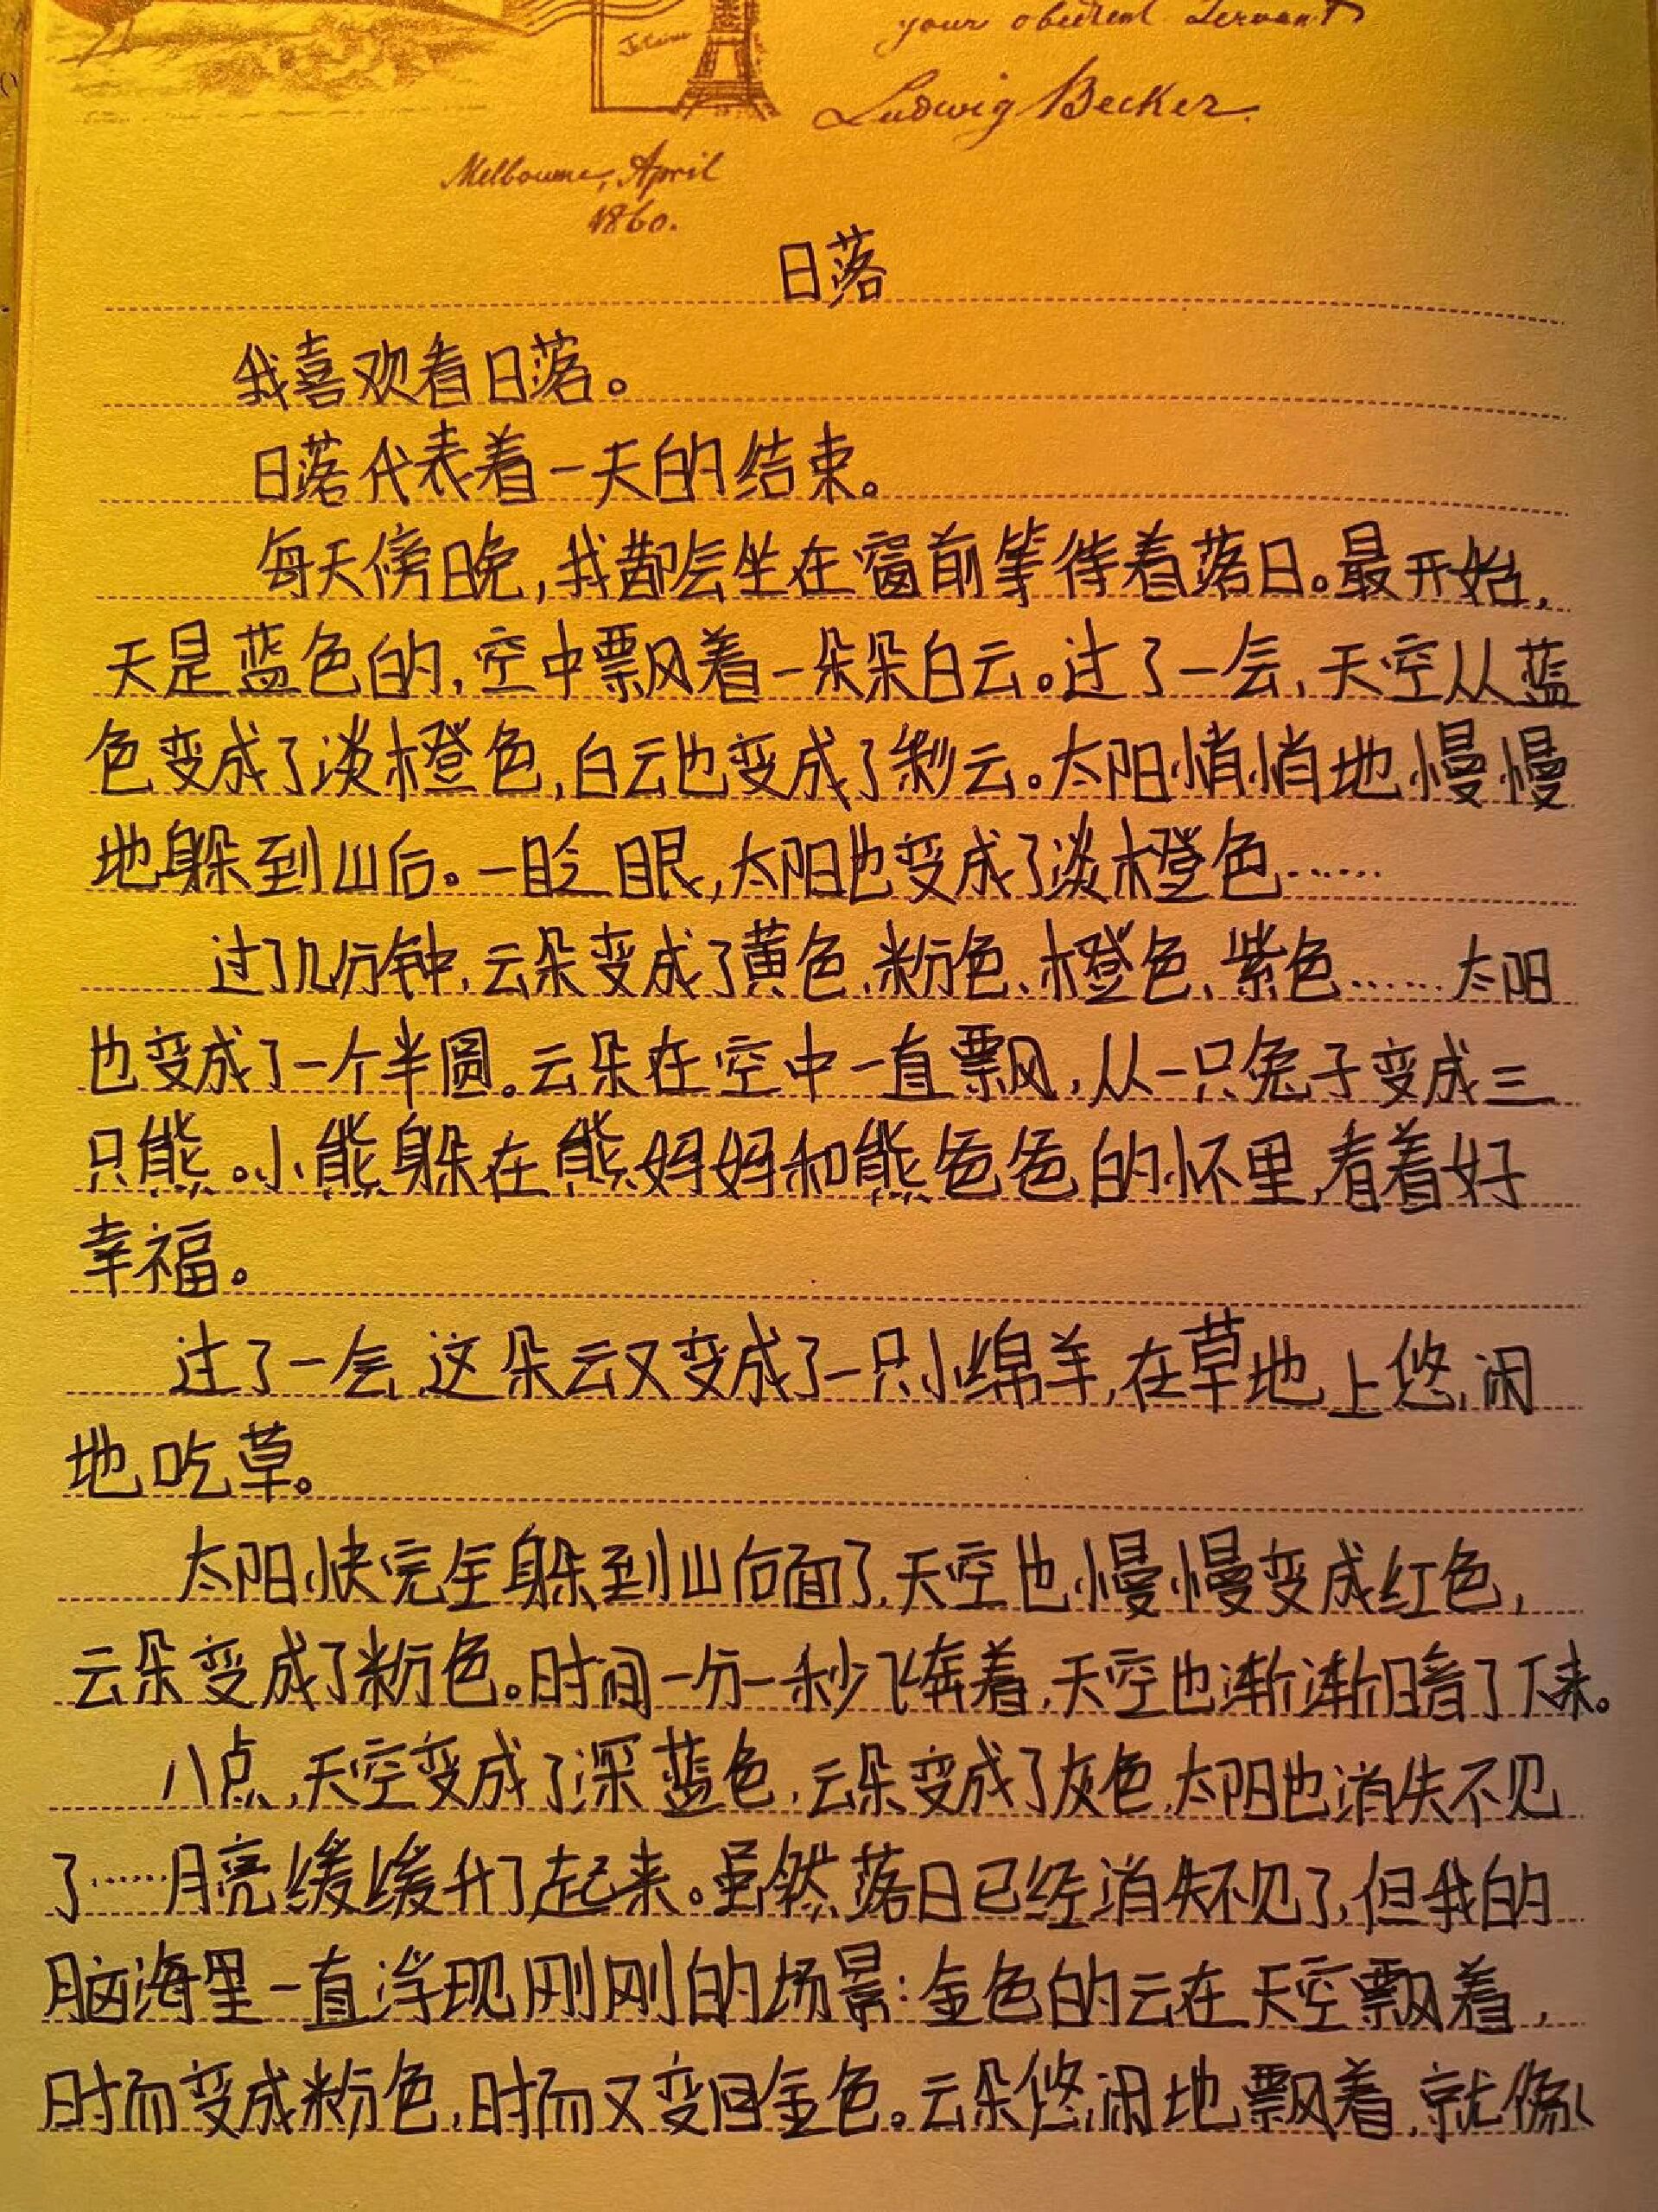 your obedient Servant
Ludwig Becker.
Melbourne, April
1860.
日落
我喜欢看日落。
日落代表着一天的结束。
每天傍晚,我都会坐在窗前等待着落日。最开始,
天是蓝色的,空中飘着一朵朵白云。过了一会,天空从蓝
色变成了淡橙色,白云也变成了彩云。太阳悄悄地慢慢
地躲到山后。一眨眼,太阳也变成了淡橙色……
过了几分钟,云朵变成了黄色、粉色、橙色、紫色……太阳
也变成了一个半圆。云朵在空中一直飘,从一只兔子变成三
只熊。小熊躲在熊妈妈和熊爸爸的怀里,看着好
幸福。
过了一会,这朵云又变成了一只小绵羊,在草地上悠闲
地吃草。
太阳快完全躲到山后面了,天空也慢慢变成红色,
云朵变成了粉色。时间一分一秒飞奔着,天空也渐渐暗了下来。
八点,天空变成了深蓝色,云朵变成了灰色,太阳也消失不见
了……月亮缓缓升了起来。虽然落日已经消失不见了,但我的
脑海里一直浮现刚刚的场景:金色的云在天空飘着,
时而变成粉色,时而又变回金色。云朵悠闲地飘着,就像